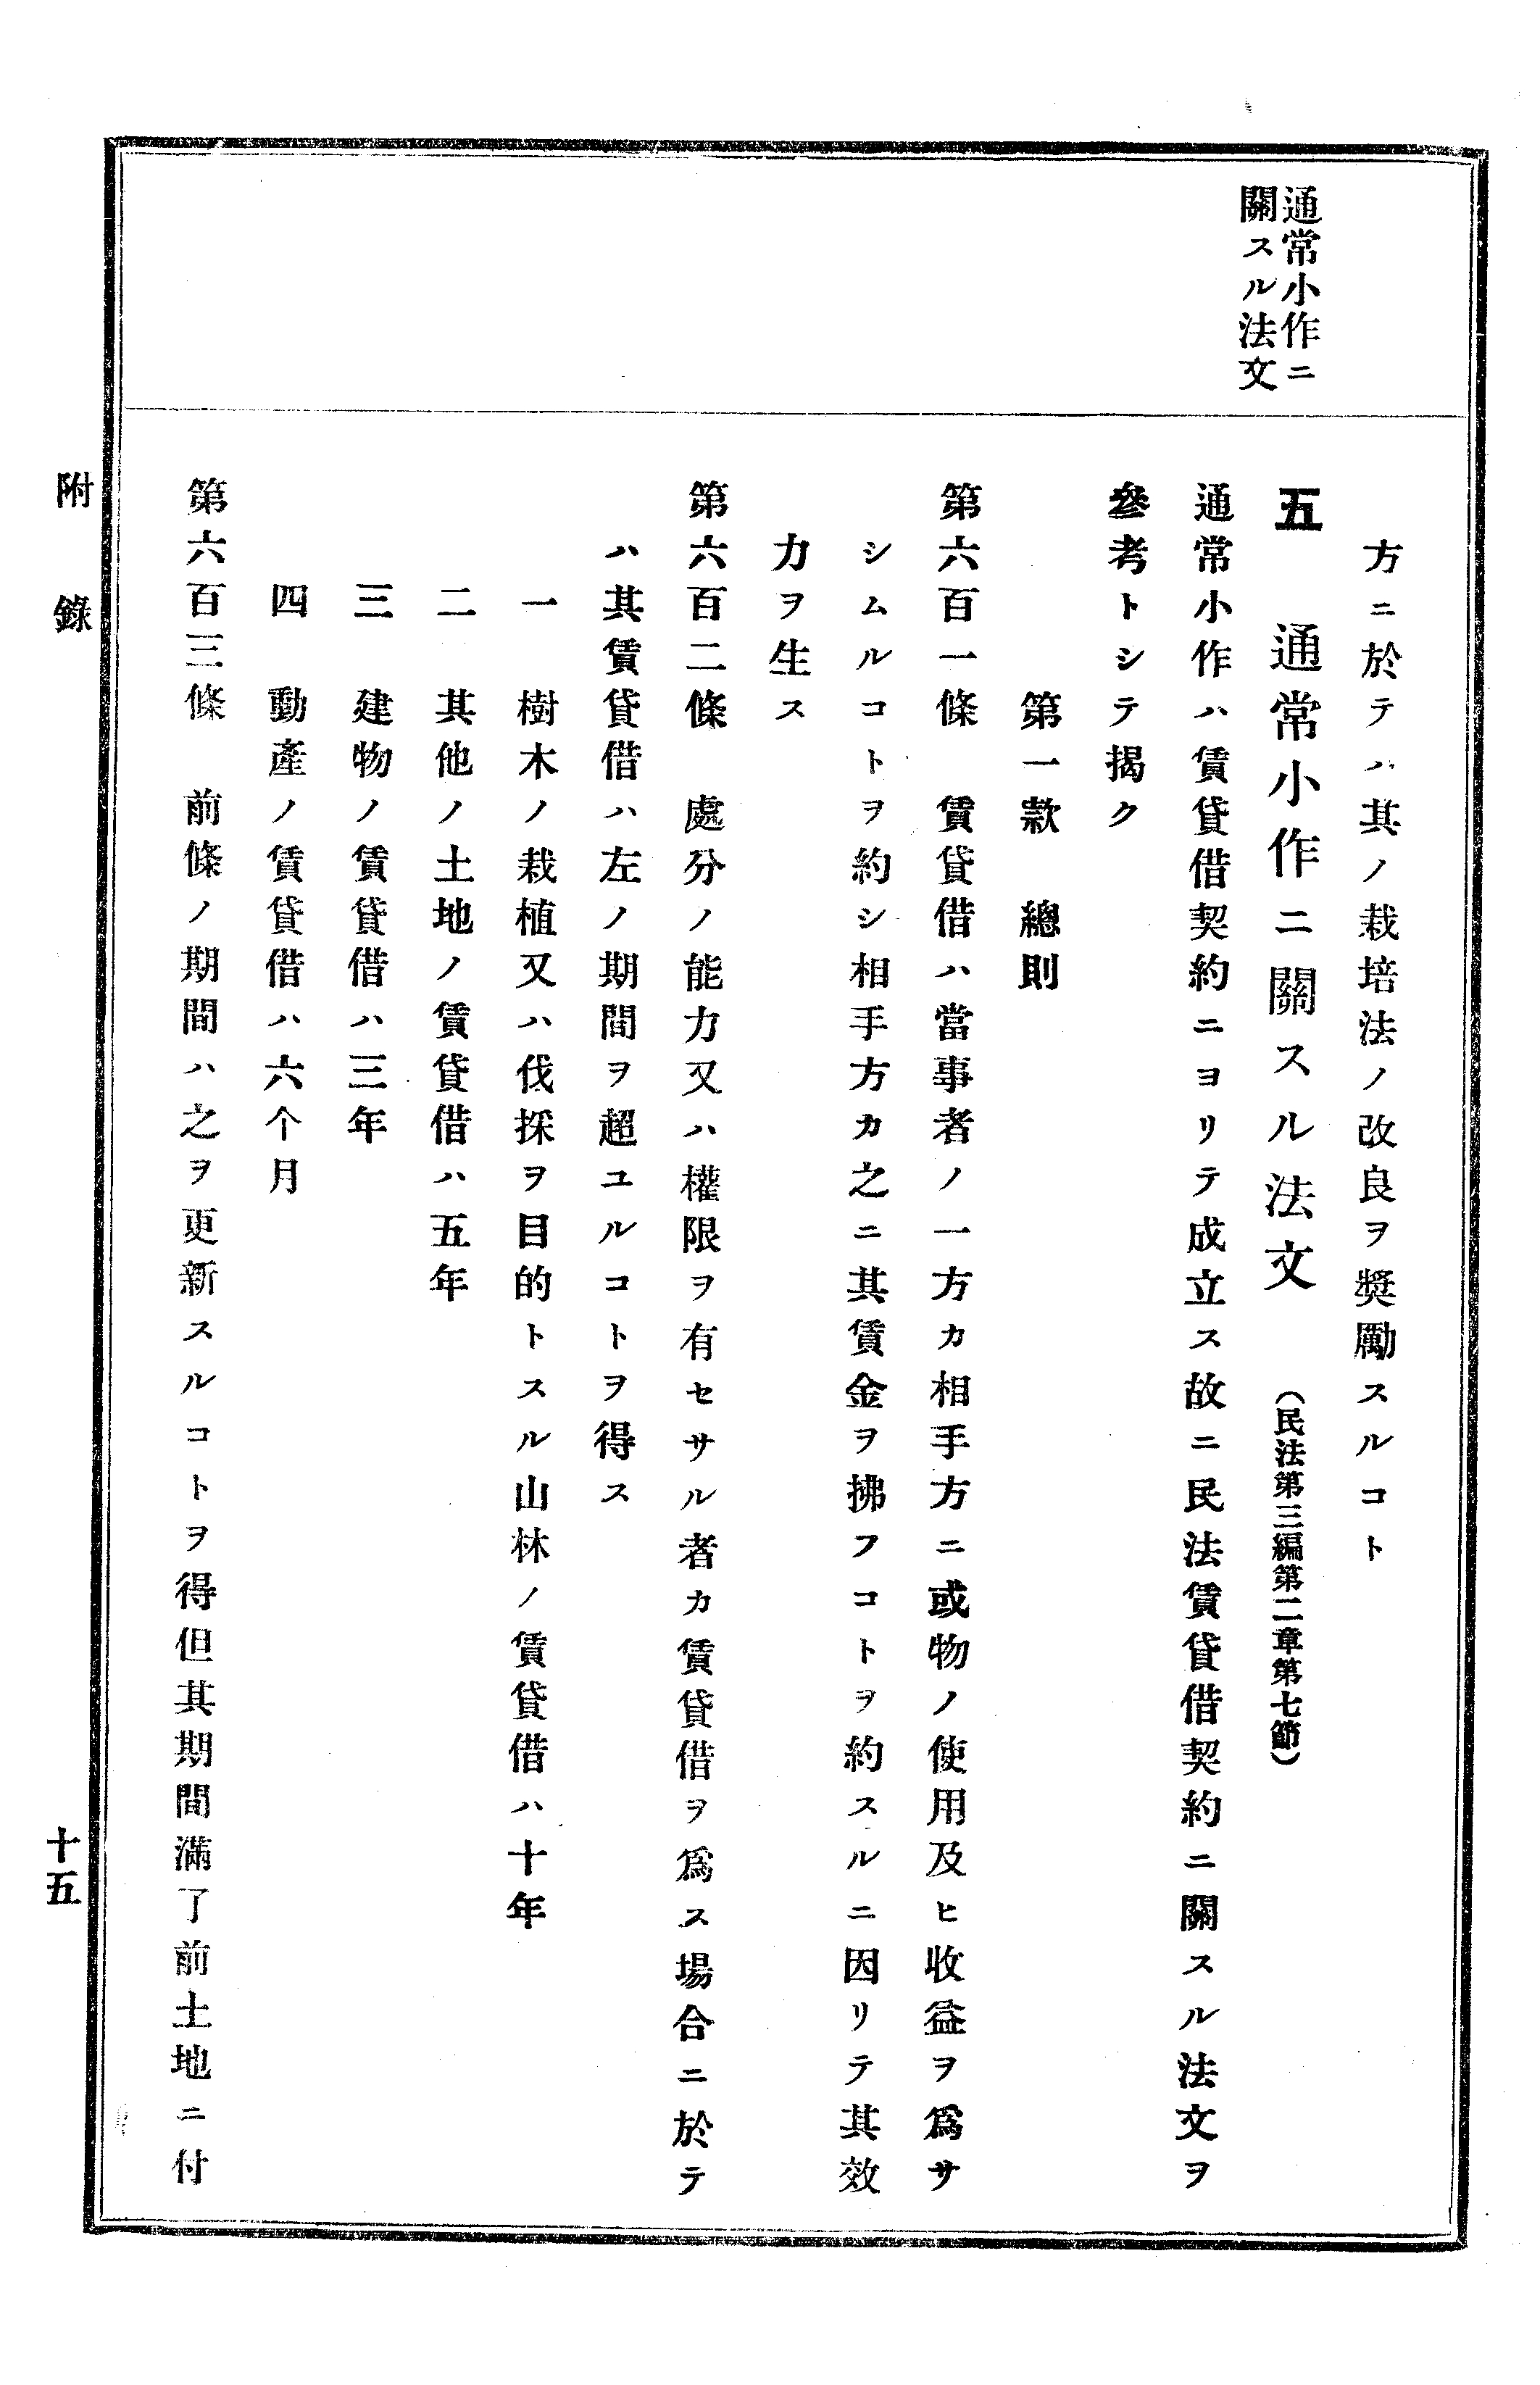 通常小作ニ
關スル法文
方ニ於テハ其ノ栽培法ノ改良ヲ奬勵スルコト
五　通常小作ニ關スル法文　（民法第三編第二章第七節）
通常小作ハ賃貸借契約ニヨリテ成立ス故ニ民法賃貸借契約ニ關スル法文ヲ
參考トシテ揭ク
第一款　總則
第六百一條　賃貸借ハ當事者ノ一方カ相手方ニ或物ノ使用及ヒ收益ヲ爲サ
シムルコトヲ約シ相手方カ之ニ其賃金ヲ拂フコトヲ約スルニ因リテ其效
力ヲ生ス
第六百二條　處分ノ能力又ハ權限ヲ有セサル者カ賃貸借ヲ爲ス場合ニ於テ
ハ其賃貸借ハ左ノ期間ヲ超ユルコトヲ得ス
一　樹木ノ栽植又ハ伐採ヲ目的トスル山林ノ賃貸借ハ十年
二　其他ノ土地ノ賃貸借ハ五年
三　建物ノ賃貸借ハ三年
四　動產ノ賃貸借ハ六个月
第六百三條　前條ノ期間ハ之ヲ更新スルコトヲ得但其期間滿了前土地ニ付
附錄
十五